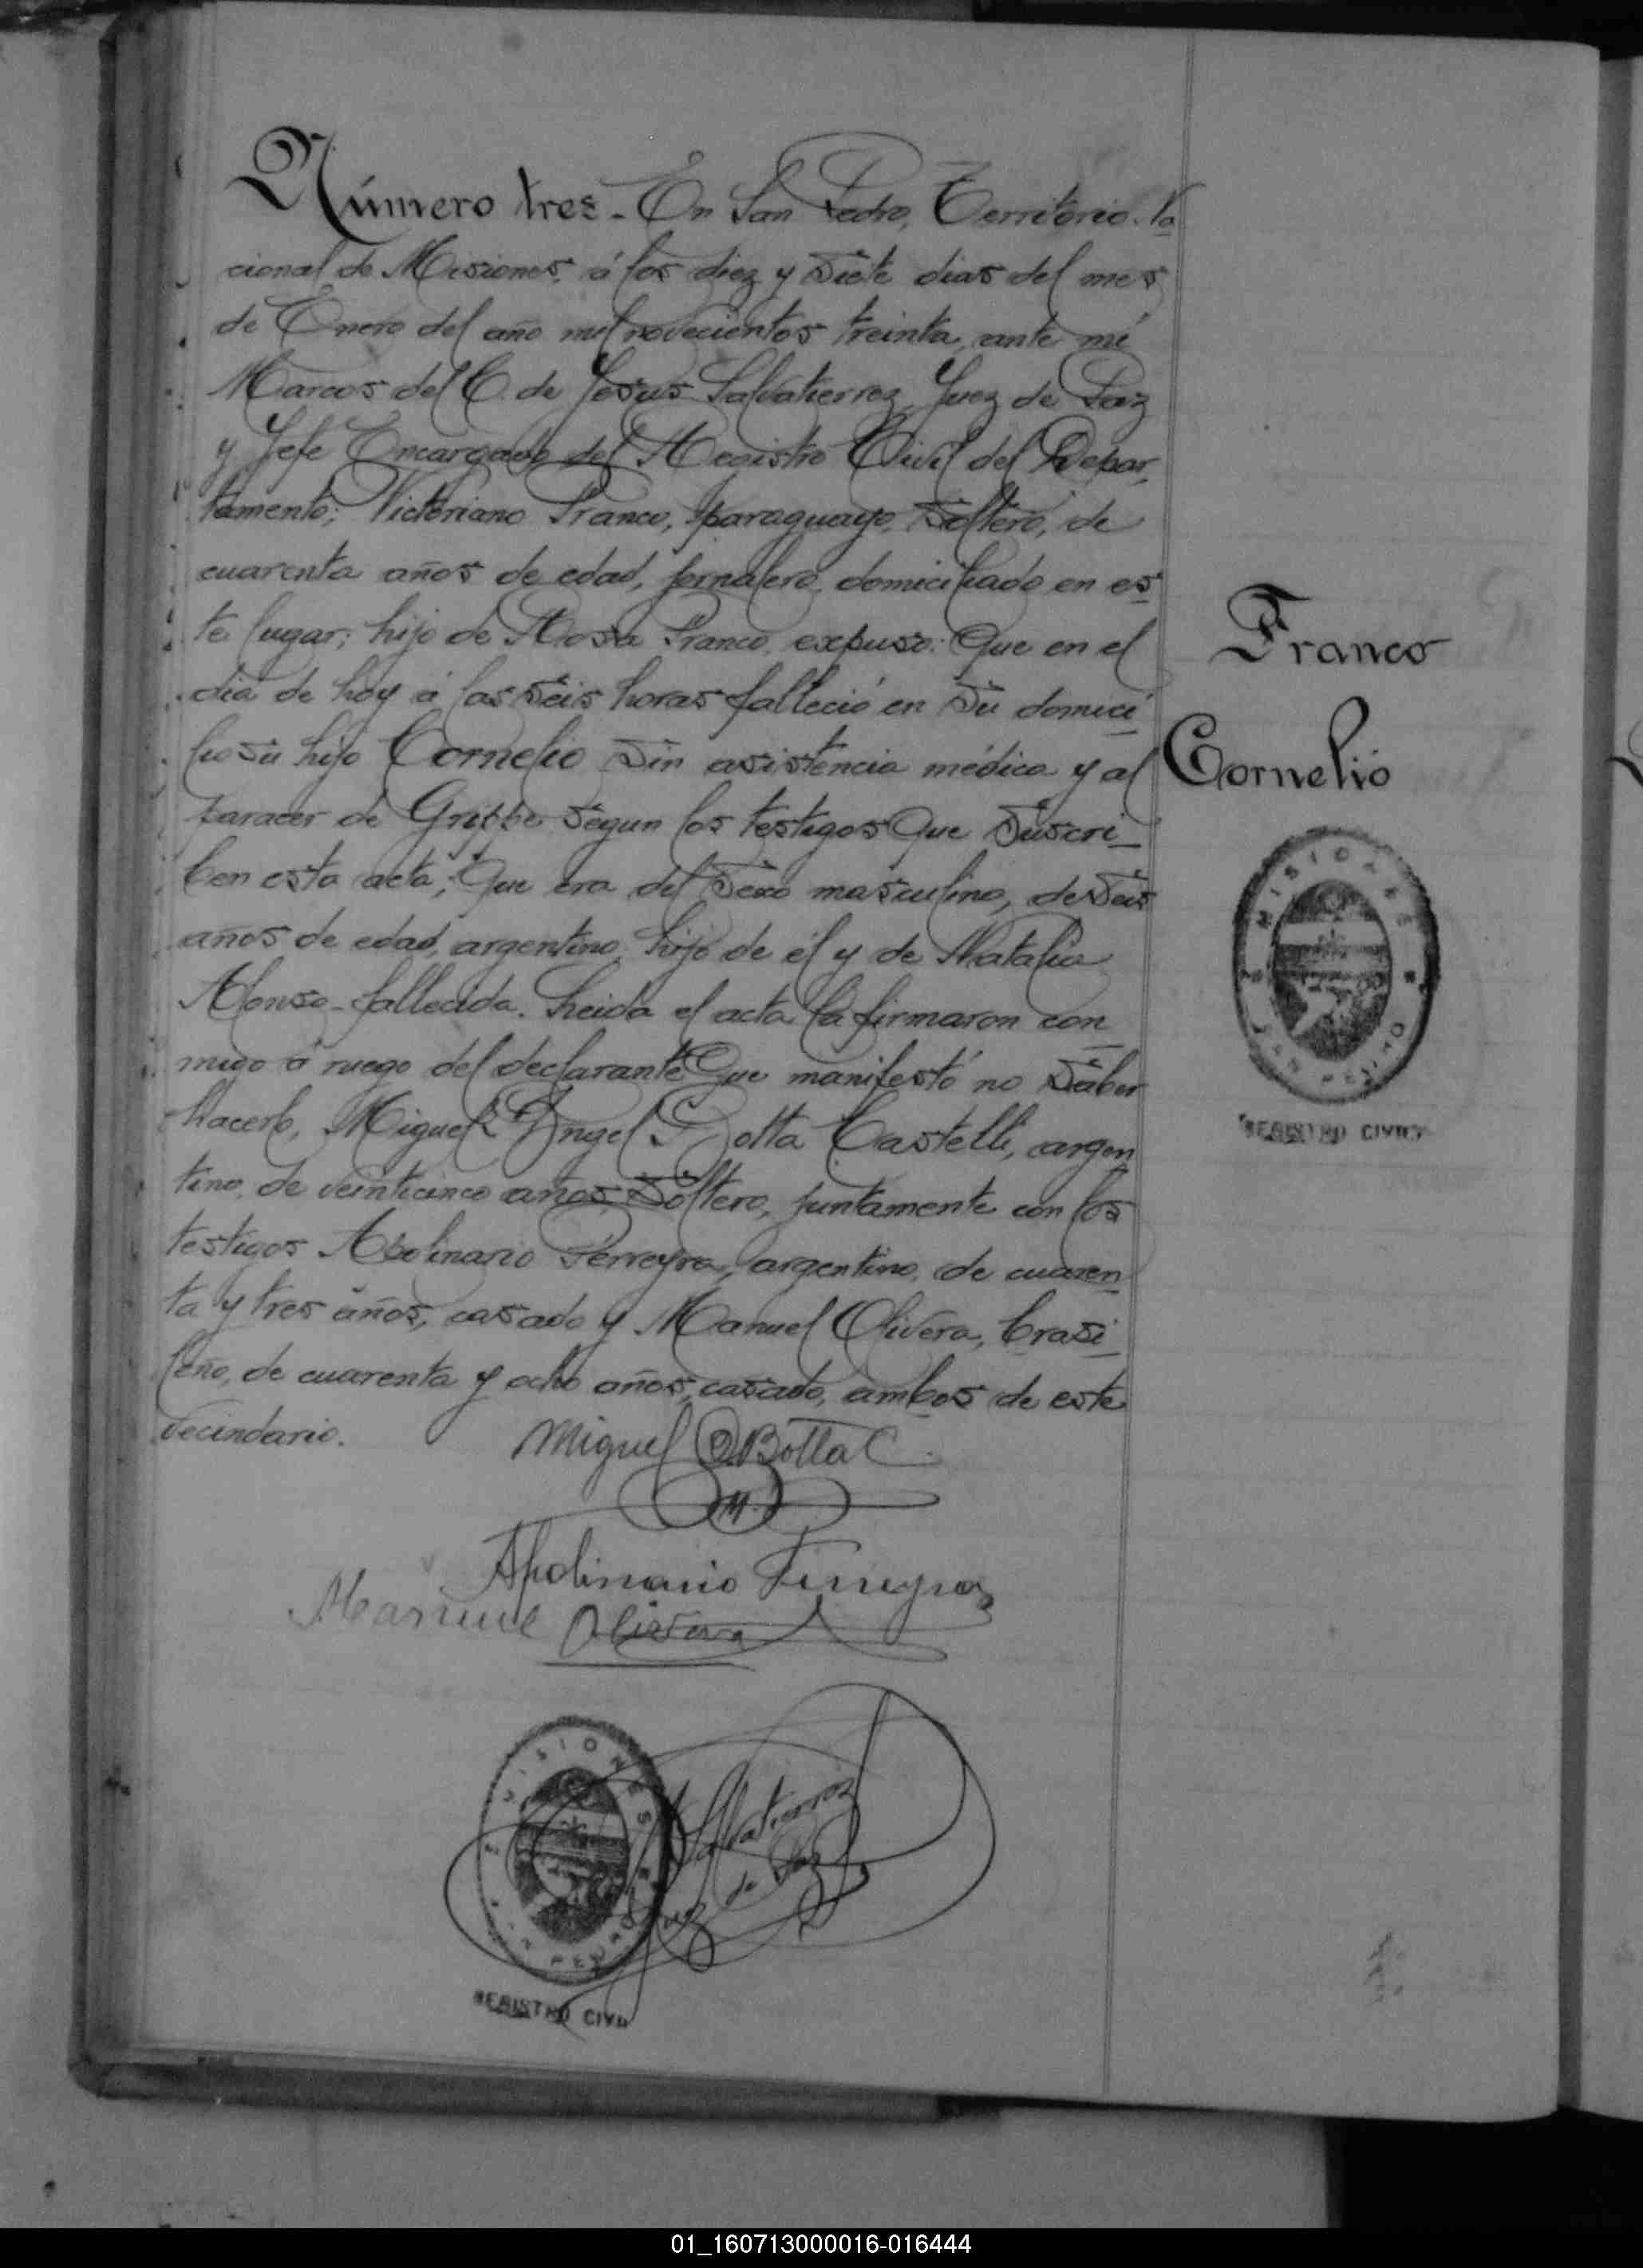 Número tres - En San Pedro, Territorio Na
cional de Misiones, á los diez y siete dias del mes
de Enero del año mil novecientos treinta, ante mí
Marcos del C. de Jesus Salvatierrez, Juez de Paz
y Jefe Encargado del Registro Civil del Depar
tamento; Victoriano Franco, paraguayo, soltero, de
cuarenta años de edad, jornalero, domiciliado en es
te lugar; hijo de Rosa Franco, expuso: Que en el
dia de hoy á las seis horas falleció en su domici
lio su hijo Cornelio sin asistencia médica y al
Franco
Cornelio
paracer de Grippe segun los testigos que suscri
ben esta acta; Que era del sexo masculino, de seis
años de edad, argentino, hijo de él y de Natalia
Alonso - fallecida. Leida el acta la firmaron con
migo á ruego del declarante que manifestó no saber
hacerlo, Miguel Angel Botta Castelli, argen
tino, de veinticinco años soltero, juntamente con los
testigos Apolinario Ferreyra, argentino, de cuaren
ta y tres años, casado y Manuel Olivera, brasi
leño, de cuarenta y ocho años, casado, ambos de este
vecindario.
MISIONES
SAN PEDRO
REGISTRO CIVIL
Miguel A Botta C.
Apolinario Ferreyra
Manuel Olivera
MISIONES
SAN PEDRO
REGISTRO CIVIL
Salvatierrez
Juez de Paz
01_160713000016-016444